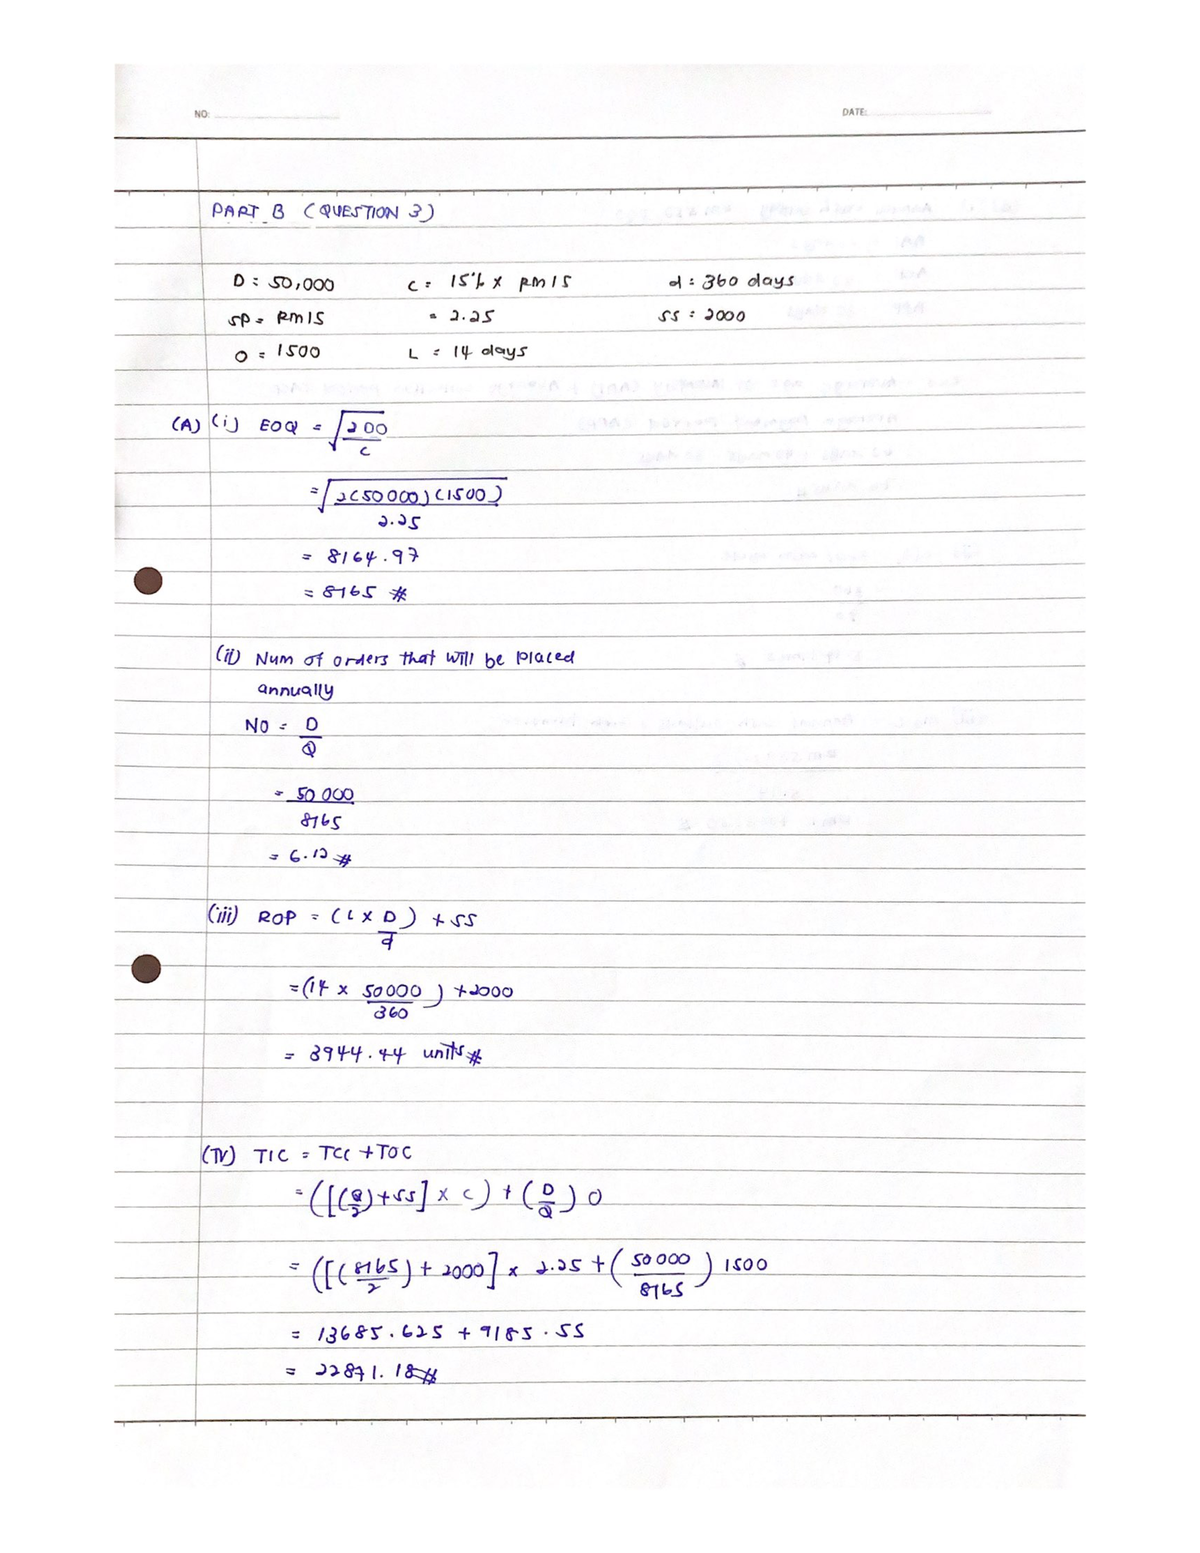 NO:
DATE:
PART B (QUESTION 3)
D = 50,000 C = 15% x RM15 d = 360 days
SP = RM15 = 2.25 SS = 2000
O = 1500 L = 14 days
(A) (i) EOQ = √2DO
C
= √2(50000)(1500)
2.25
= 8164.97
= 8165 #
(ii) Num of orders that will be placed
annually
NO = D
Q
= 50 000
8165
= 6.12 #
(iii) ROP = (L x D) + SS
d
= (14 x 50000) + 2000
360
= 3944.44 units #
(IV) TIC = TCC + TOC
= ([(Q/2) + SS] x C) + (D/Q) O
= ([(8165/2) + 2000] x 2.25 + (50000/8165) 1500
= 13685.625 + 9185.55
= 22871.18 #